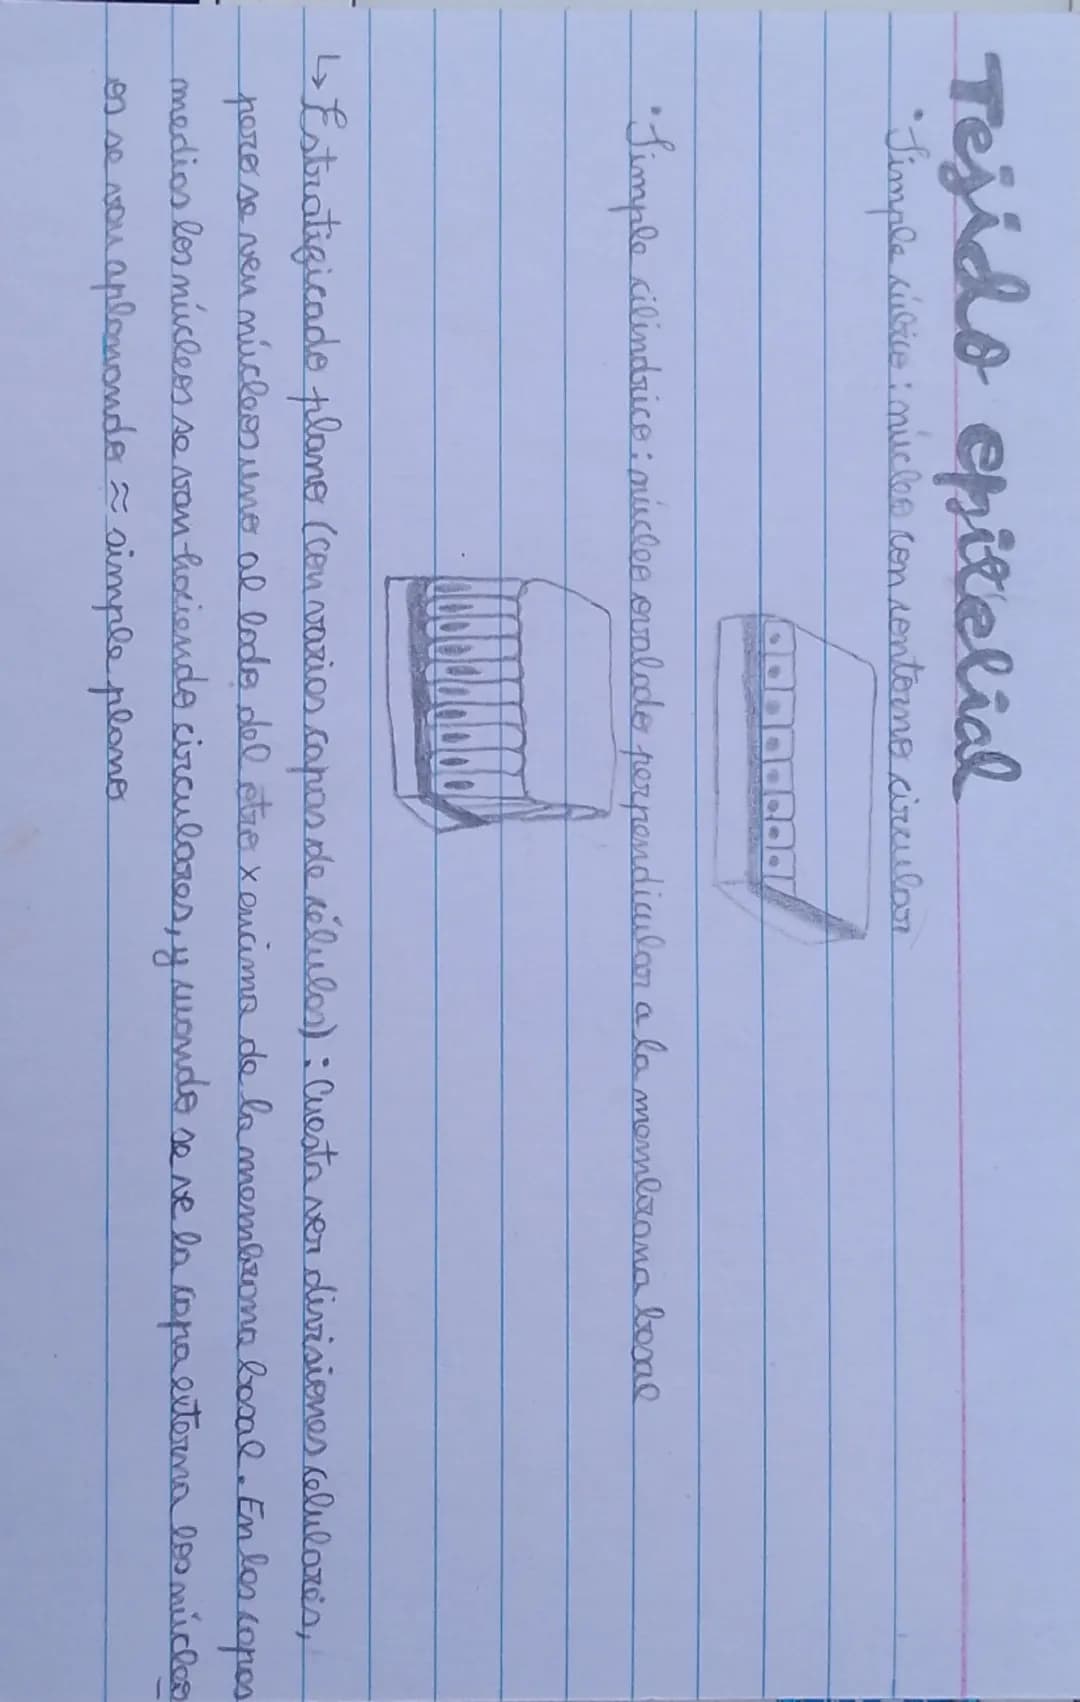 Tejido epitelial
• Simple cúbico: núcleo con contorno circular
• Simple cilíndrico: núcleo ovalado perpendicular a la membrana basal
↳ Estratificado plano (con varias capas de células): Cuesta ver divisiones celulares,
pero se ven núcleos uno al lado del otro x encima de la membrana basal. En las capas
medias los núcleos se van haciendo circulares, y cuando se ve la capa externa los núcleo
es se van aplanando ≈ simple plano